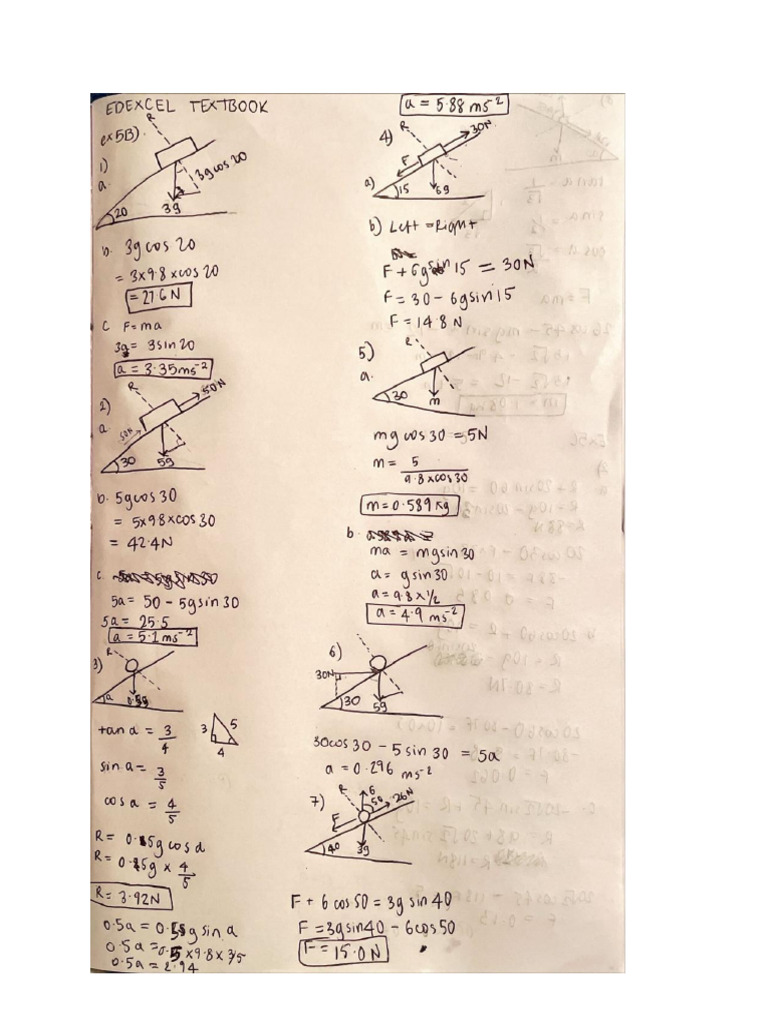 EDEXCEL TEXTBOOK
ex5B)
1)
a.
R
3gcos 20
3g
20
b. 3g cos 20
= 3×9.8×cos 20
= 27.6 N
c F=ma
3g= 3sin20
a = 3.35ms⁻²
2)
a
R
50N
50N
30
5g
b. 5gcos 30
= 5×98×cos 30
= 42.4N
c
5a= 50 - 5gsin30
5a= 25.5
a = 5.1 ms⁻²
3)
R
a
0.5g
tan a = 3/4
3
5
4
sin a = 3/5
cos a = 4/5
R= 0.5g cos a
R= 0.5g × 4/5
R= 3.92N
0.5a= 0.5g sin a
0.5a = 0.5×9.8×3/5
0.5a= 2.94
a = 5.88 ms⁻²
4)
R
30N
F
a)
15
6g
b) Left = Right
F+6gsin 15 = 30N
F= 30 - 6gsin15
F= 14.8 N
5)
R
a.
30
m
mg cos 30 = 5N
m= 5/9.8×cos30
m= 0.589 kg
b.
ma = mgsin30
a= gsin30
a= 9.8×1/2
a= 4.9 ms⁻²
6)
30N
30
5g
30cos 30 - 5 sin 30 = 5a
a= 0.296 ms⁻²
7)
R
6
50
26N
F
40
3g
F+ 6 cos 50 = 3g sin 40
F=3gsin40 - 6cos50
F= 15.0 N